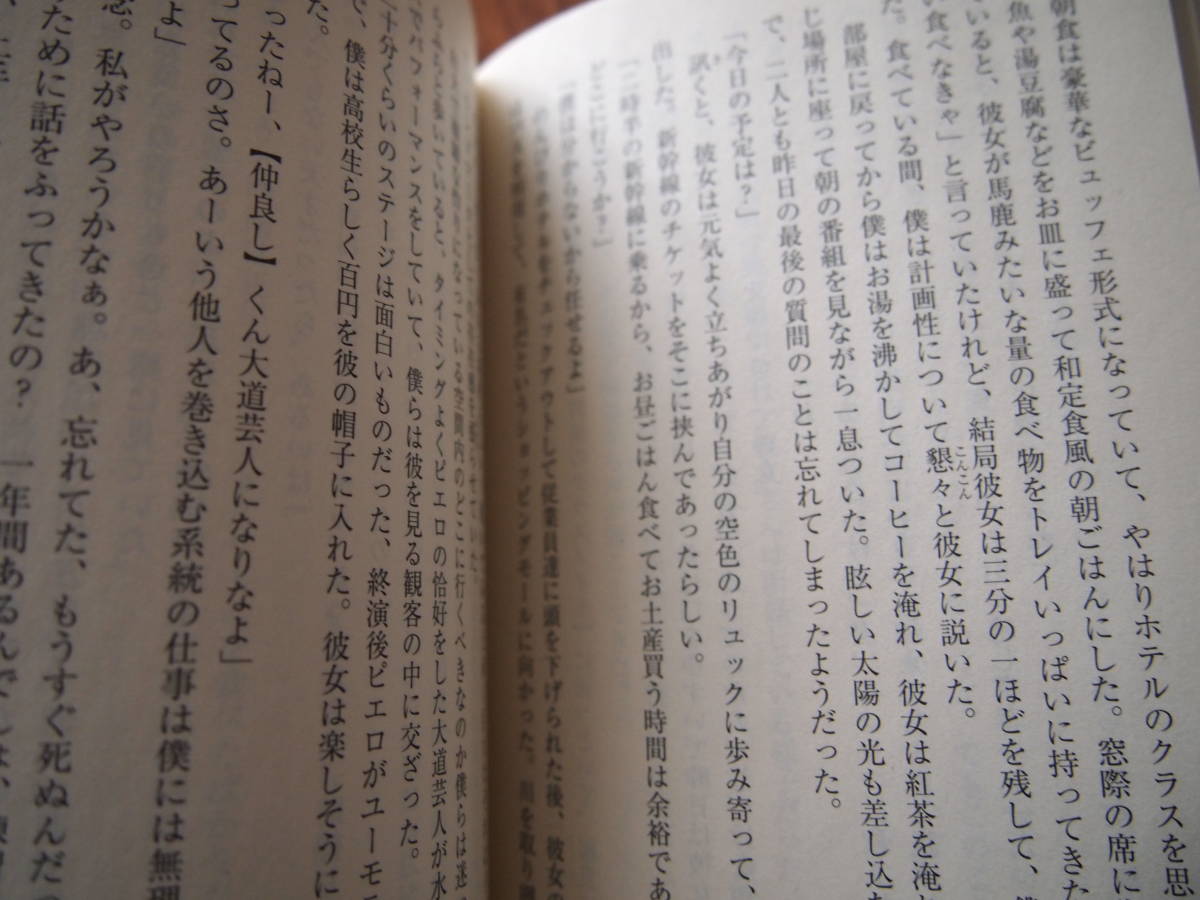 朝食は豪華なビュッフェ形式になっていて、やはりホテルのクラスを思
魚や湯豆腐などをお皿に盛って和定食風の朝ごはんにした。窓際の席に
ていると、彼女が馬鹿みたいな量の食べ物をトレイいっぱいに持ってきた
い食べなきゃ」と言っていたけれど、結局彼女は三分の一ほどを残して、僕
た。食べている間、僕は計画性について懇々と彼女に説いた。
こんこん
部屋に戻ってから僕はお湯を沸かしてコーヒーを淹れ、彼女は紅茶を淹れ
じ場所に座って朝の番組を見ながら一息ついた。眩しい太陽の光も差し込む
で、二人とも昨日の最後の質問のことは忘れてしまったようだった。
「今日の予定は?」
訊くと、彼女は元気よく立ちあがり自分の空色のリュックに歩み寄って、
出した。新幹線のチケットをそこに挟んであったらしい。
「二時半の新幹線に乗るから、お昼ごはん食べてお土産買う時間は余裕であ
どこに行こうか?」
「僕は分からないから任せるよ」
チェックアウトして従業員達に頭を下げられた後、彼女の
ショッピングモールに向かった。川を取り
なっている空間内のどこに行くべきなのか僕らは迷
歩いていると、タイミングよくピエロの恰好をした大道芸人が水
でパフォーマンスをしていて、僕らは彼を見る観客の中に交ざった。
十分くらいのステージは面白いものだった、終演後ピエロがユーモ
で、僕は高校生らしく百円を彼の帽子に入れた。彼女は楽しそうに
た。
ったねー、【仲良し】くん大道芸人になりなよ」
ってるのさ。あーいう他人を巻き込む系統の仕事は僕には無理
よ」
念。私がやろうかなぁ。あ、忘れてた、もうすぐ死ぬんだっ
ために話をふってきたの?
一年間あるんでしょ、